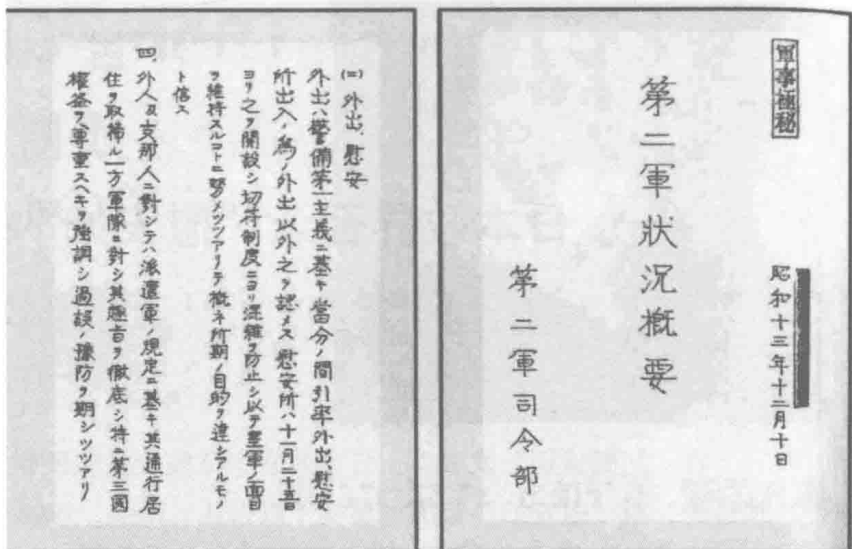 軍事極秘
昭和十三年十二月十日
第二軍状況概要
第二軍司令部
(二) 外出、慰安
外出ハ警備第一主義ニ基キ當分ノ間引率外出、慰安
所出入ノ為ノ外出以外之ヲ認メス慰安所ハ十一月二十五日
ヨリ之ヲ開設シ切符制度ニヨリ混雑ヲ防止シ以テ皇軍ノ面目
ヲ維持スルコトニ努メツツアリテ概ネ所期ノ目的ヲ達シアルモノ
ト信ス
四、外人及支那人ニ對シテハ派遣軍ノ規定ニ基キ其通行居
住ヲ取締ル一方軍隊ニ對シ其趣旨ヲ徹底シ特ニ第三國
権益ヲ尊重スヘキヲ強調シ過誤ノ豫防ヲ期シツツアリ